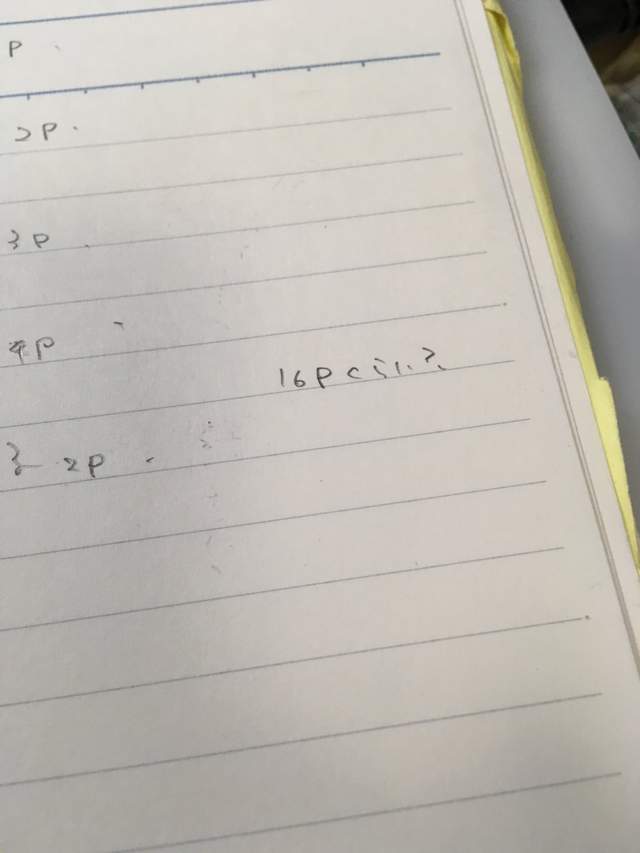 P
2P.
3P
4P
16Pくらい?
} 2P